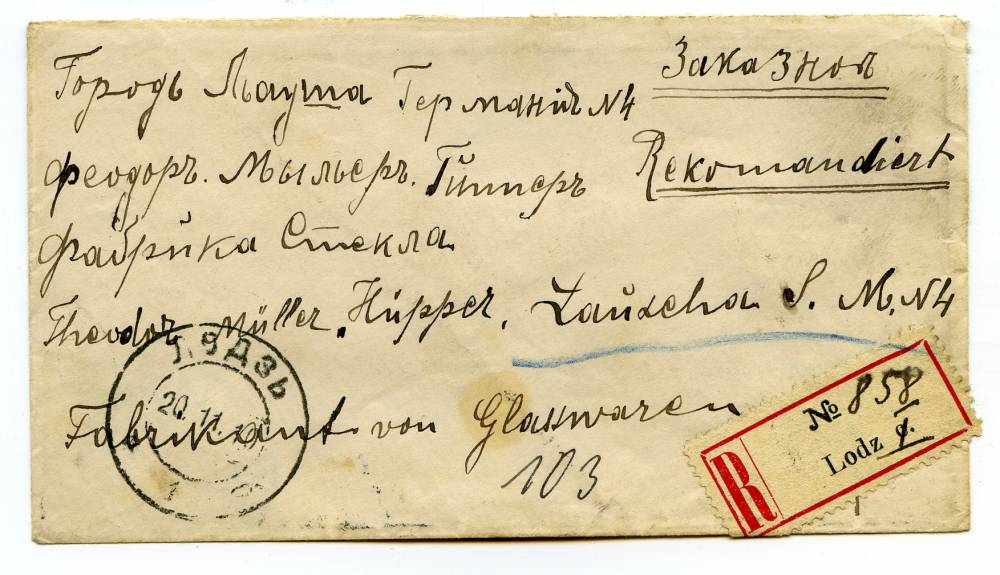 Городъ Лауша Германія N4
Заказной
Феодоръ. Мыльеръ. Гипперъ
Rekomandiert
фабрика Стекла
Theodor Müller, Hüpper, Lauscha S. M. N4
Fabrikant von Glasswaren
103
ЛОДЗЬ
20. 11
R
№ 858
Lodz